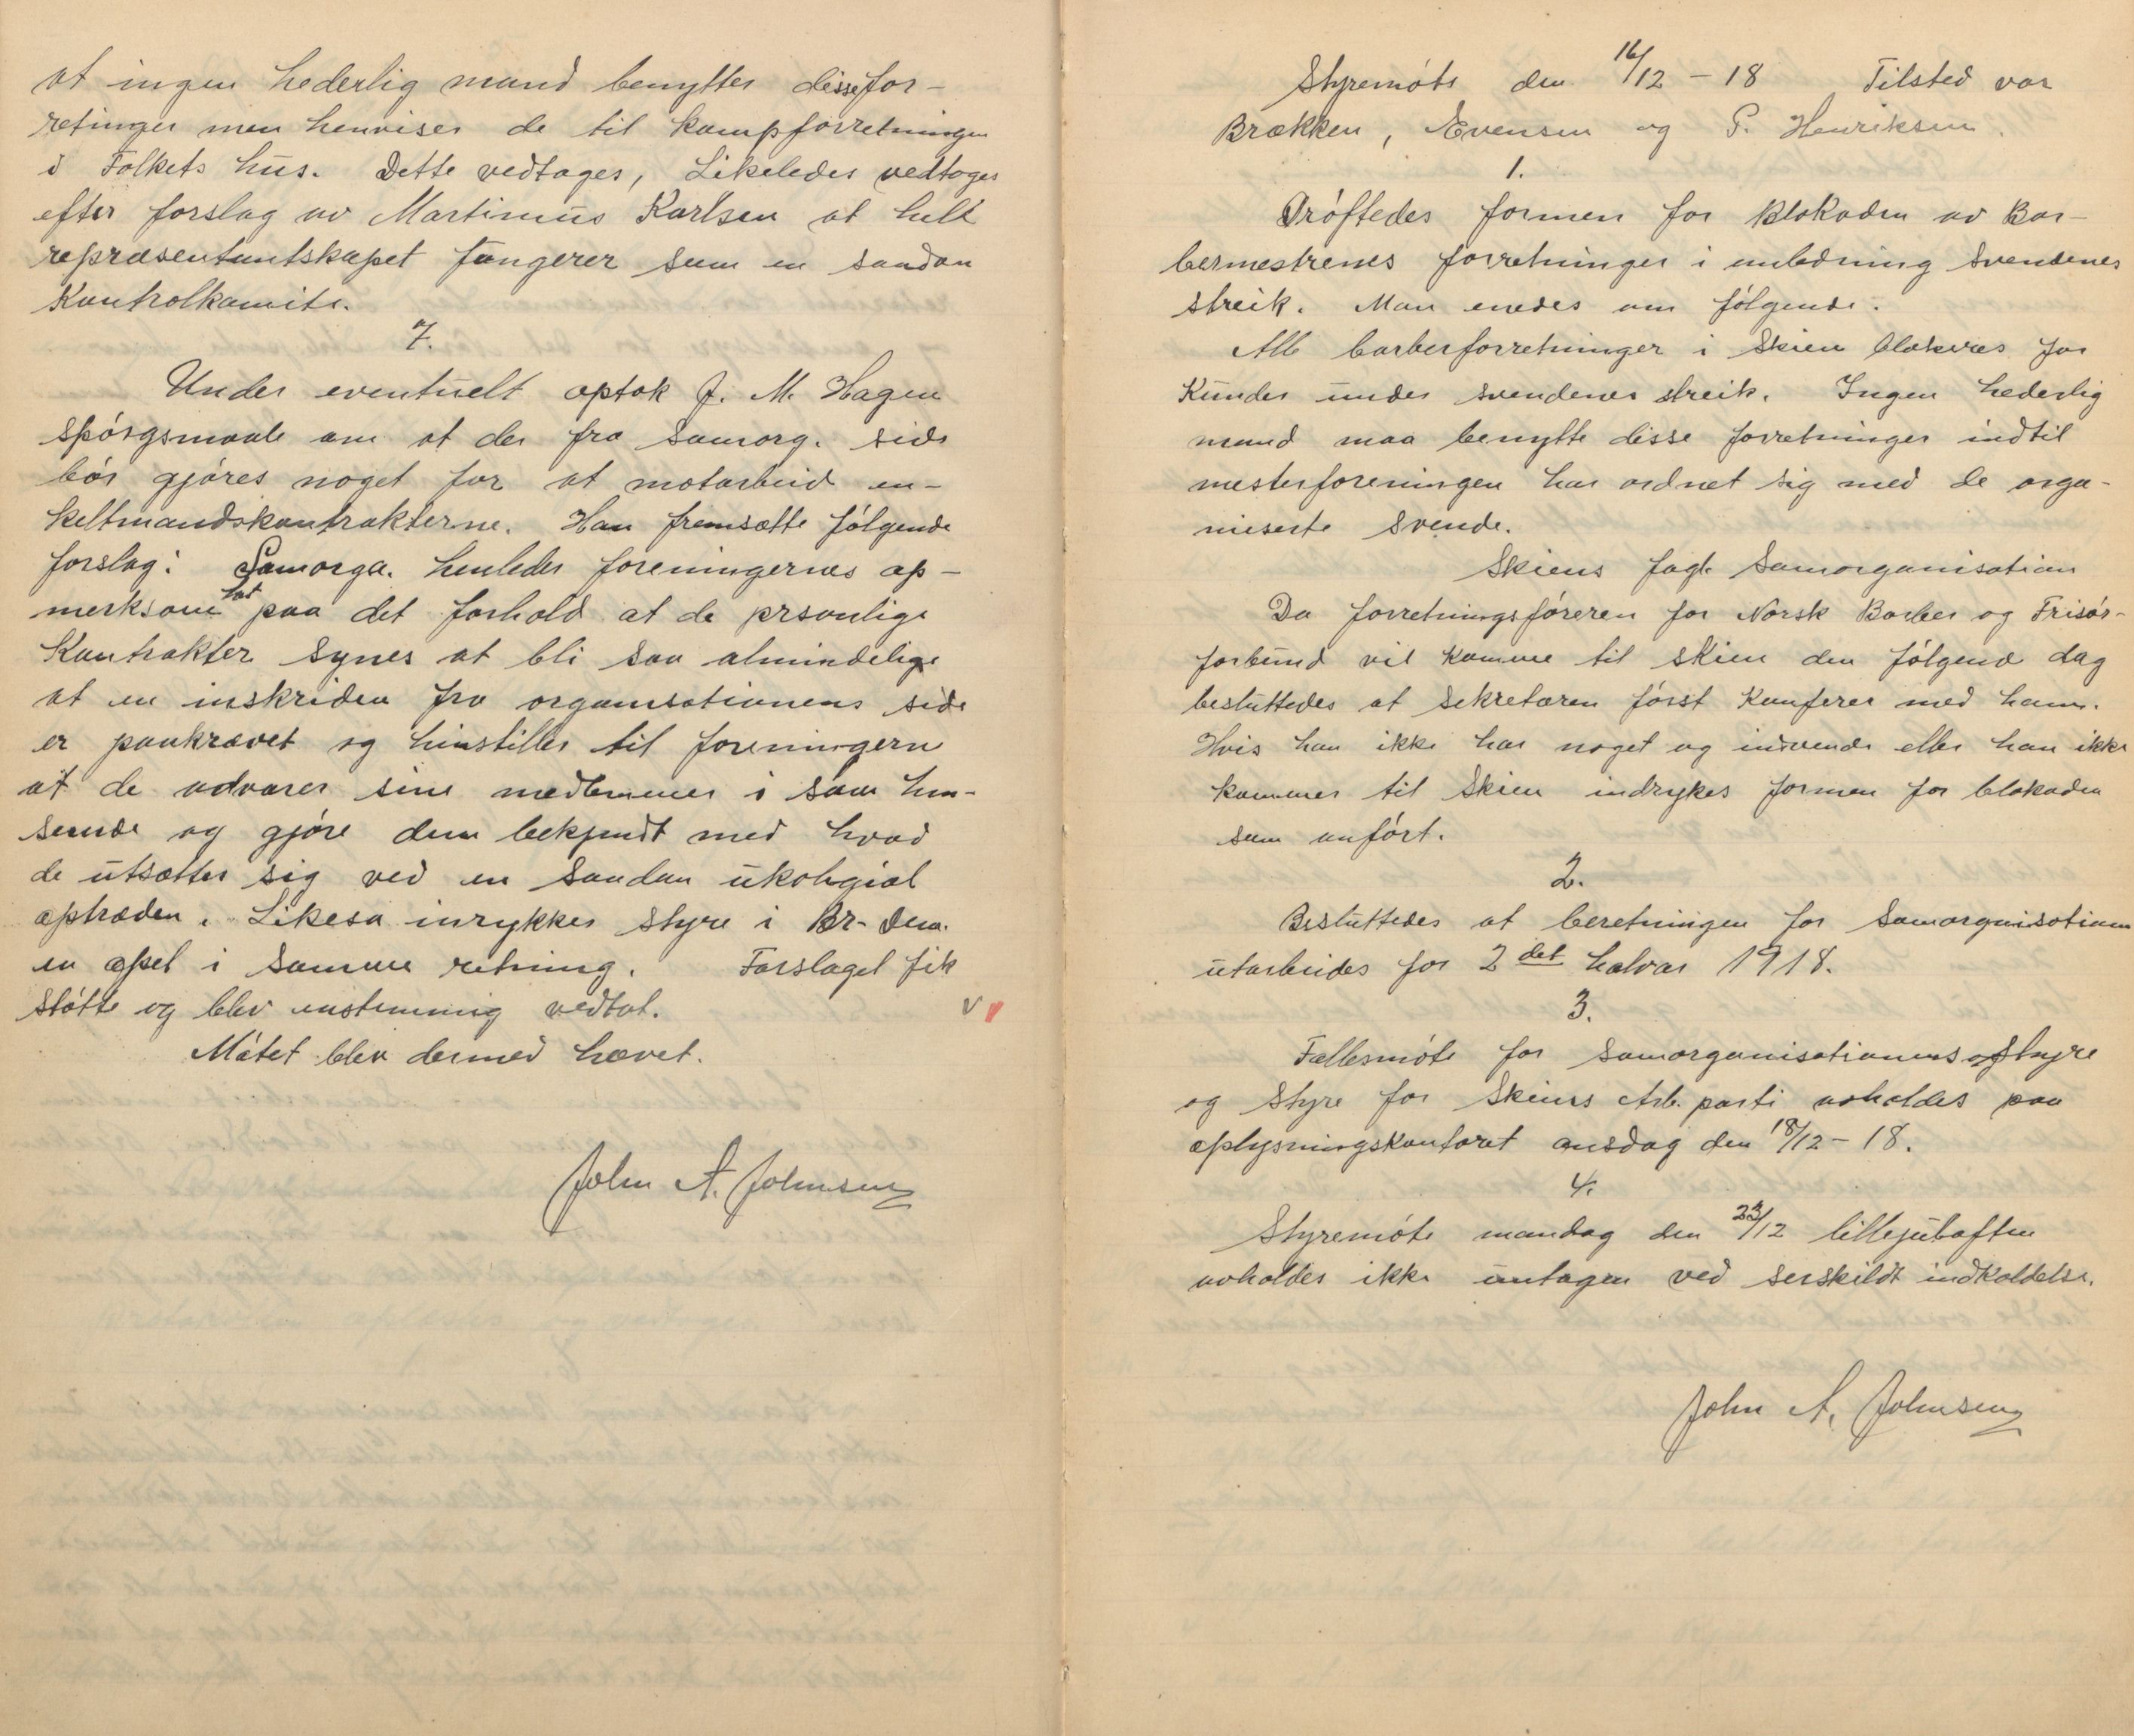 at ingen hederlig mand benytter disse for-
retinger men henviser de til kampforretningen
i Folkets hus. Dette vedtages, Likeledes vedtages
efter forslag av Martinius Karlsen at hele
repræsentantskapet fungerer som en saadan
Kontrolkomite.
7.
Under eventuelt optok J. M. Hagen
spørgsmaale om at der fra Samorg. side
bør gjøres noget for at motarbeid en-
keltmandskontrakterne. Han fremsatte følgende
forslag: Samorga. henleder foreningernes op-
merksomhet paa det forhold at de prsonlige
Kontrakter synes at bli saa almindelige
at en inskriden fra organisationens side
er paakrævet og hinstiller til foreningern
at de advarer sine medlemmer i saa hen-
seende og gjøre dem bekjendt med hvad
de utsætter sig ved en saadan ukolegial
optræden. Likesa inrykkes styre i Br- Dem.
en apel i samme retning. Forslaget fik
støtte og blev enstemmig vedtat.
Møtet blev dermed hævet.
John A. Johnsen
Styremøte den 16/12 - 18 Tilsted var
Brækken, Evensen og P. Henriksen.
1.
Drøftedes formen for Blokaden av Bar-
bermestrenes forretninger i anledning Svendenes
streik. Man enedes om følgende.
Alle barberforretninger i Skien blokeres for
Kunder under svendenes streik. Ingen hederlig
mand maa benytte disse forretninger indtil
mesterforeningen har ordnet sig med de orga-
niserte Svende.
Skiens fagl. Samorganisation
Da forretningsføreren for Norsk Barber og Frisør-
forbund vil komme til Skien den følgend dag
besluttedes at Sekretæren først Konferer med ham.
Hvis han ikke har noget og indvende eller han ikke
kommer til Skien indrykes formen for blokaden
som anført.
2.
Besluttedes at beretningen for Samorganisationen
utarbeides for 2det halvar 1918.
3.
Fællesmøte for Samorganisationens Styre
og Styre for Skiens Arb. parti avholdes paa
oplysningskontoret onsdag den 18/12 - 18.
4.
Styremøte mandag den 23/12 lillejulaften
avholdes ikke untagen ved serskildt indkaldelse.
John A. Johnsen